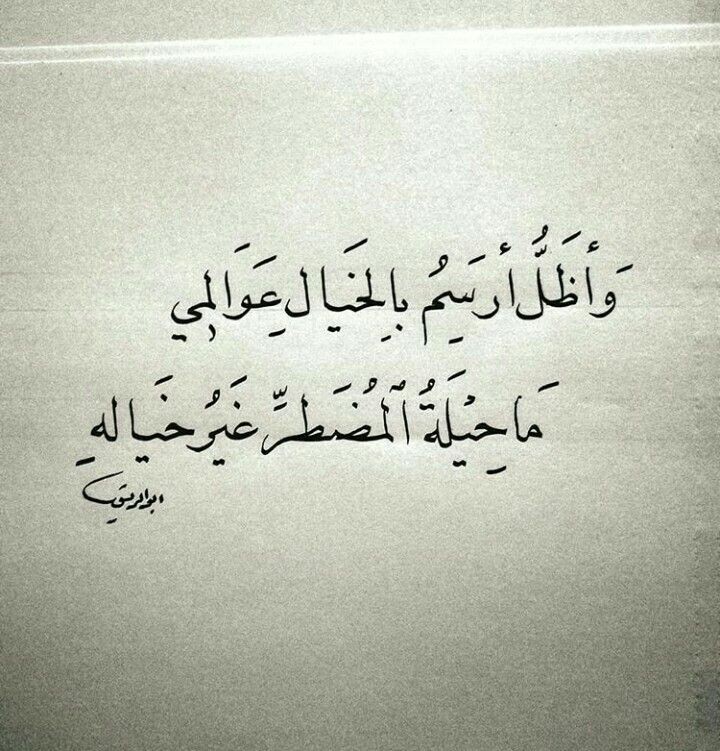 وَأَظَلُّ أَرسَمُ بِالخَيَالِ عَوَالِمِي
مَا حِيْلَةُ ٱلْمُضْطَرِّ غَيْرُ خَيَالِهِ